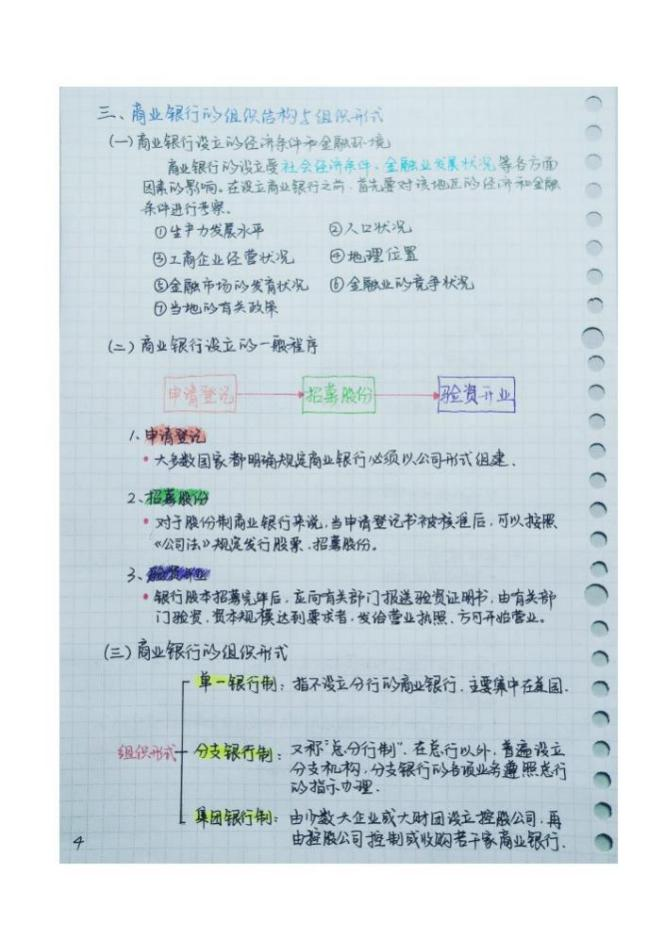 三、商业银行的组织结构与组织形式
(一)商业银行设立的经济条件和金融环境
商业银行的设立受社会经济条件、金融业发展状况等各方面
因素的影响。在设立商业银行之前,首先要对该地区的经济和金融
条件进行考察。
①生产力发展水平 ②人口状况
③工商企业经营状况 ④地理位置
⑤金融市场的发育状况 ⑥金融业的竞争状况
⑦当地的有关政策
(二)商业银行设立的一般程序
申请登记 招募股份 验资开业
1、申请登记
•大多数国家都明确规定商业银行必须以公司形式组建.
2、招募股份
•对于股份制商业银行来说,当申请登记书被核准后,可以按照
《公司法》规定发行股票、招募股份。
3、验资开业
•银行股本招募完毕后,应向有关部门报送验资证明书,由有关部
门验资,资本规模达到要求者,发给营业执照、方可开始营业。
(三)商业银行的组织形式
单一银行制:指不设立分行的商业银行.主要集中在美国.
组织形式 分支银行制:又称"总分行制".在总行以外,普遍设立
分支机构,分支银行的各项业务遵照总行
的指示办理.
集团银行制:由少数大企业或大财团设立控股公司,再
由控股公司控制或收购若干家商业银行.
4